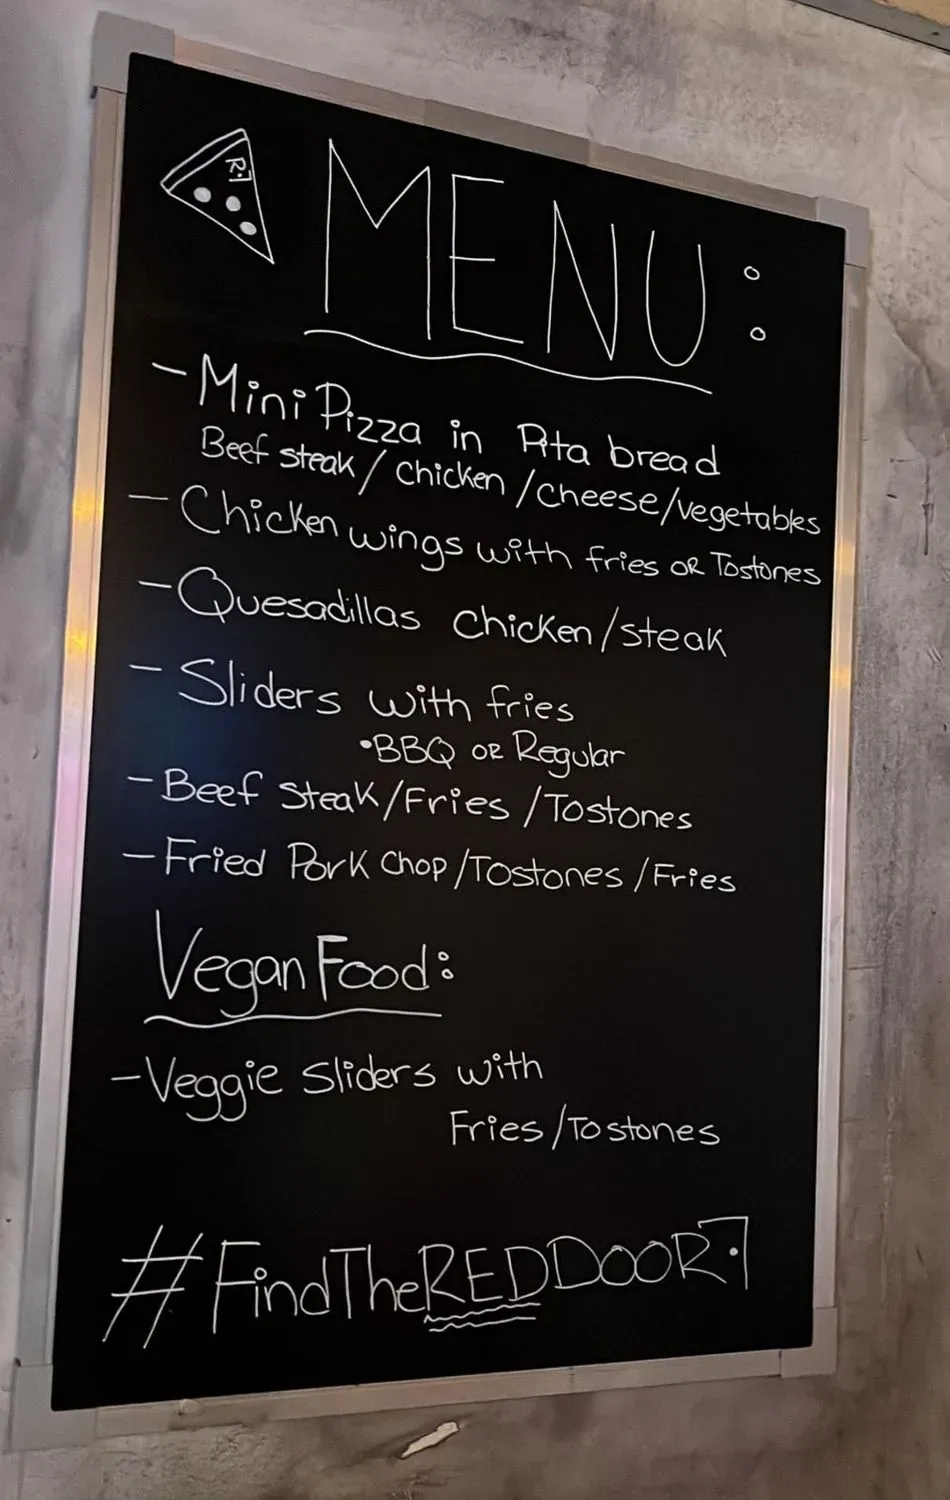 R.
MENU:
- Mini Pizza in Pita bread
Beef steak / chicken / cheese / vegetables
- Chicken wings with fries OR Tostones
- Quesadillas chicken / steak
- Sliders with fries
•BBQ OR Regular
- Beef Steak / Fries / Tostones
- Fried Pork chop / Tostones / Fries
Vegan Food:
- Veggie sliders with
Fries / Tostones
#FindTheREDDOOR